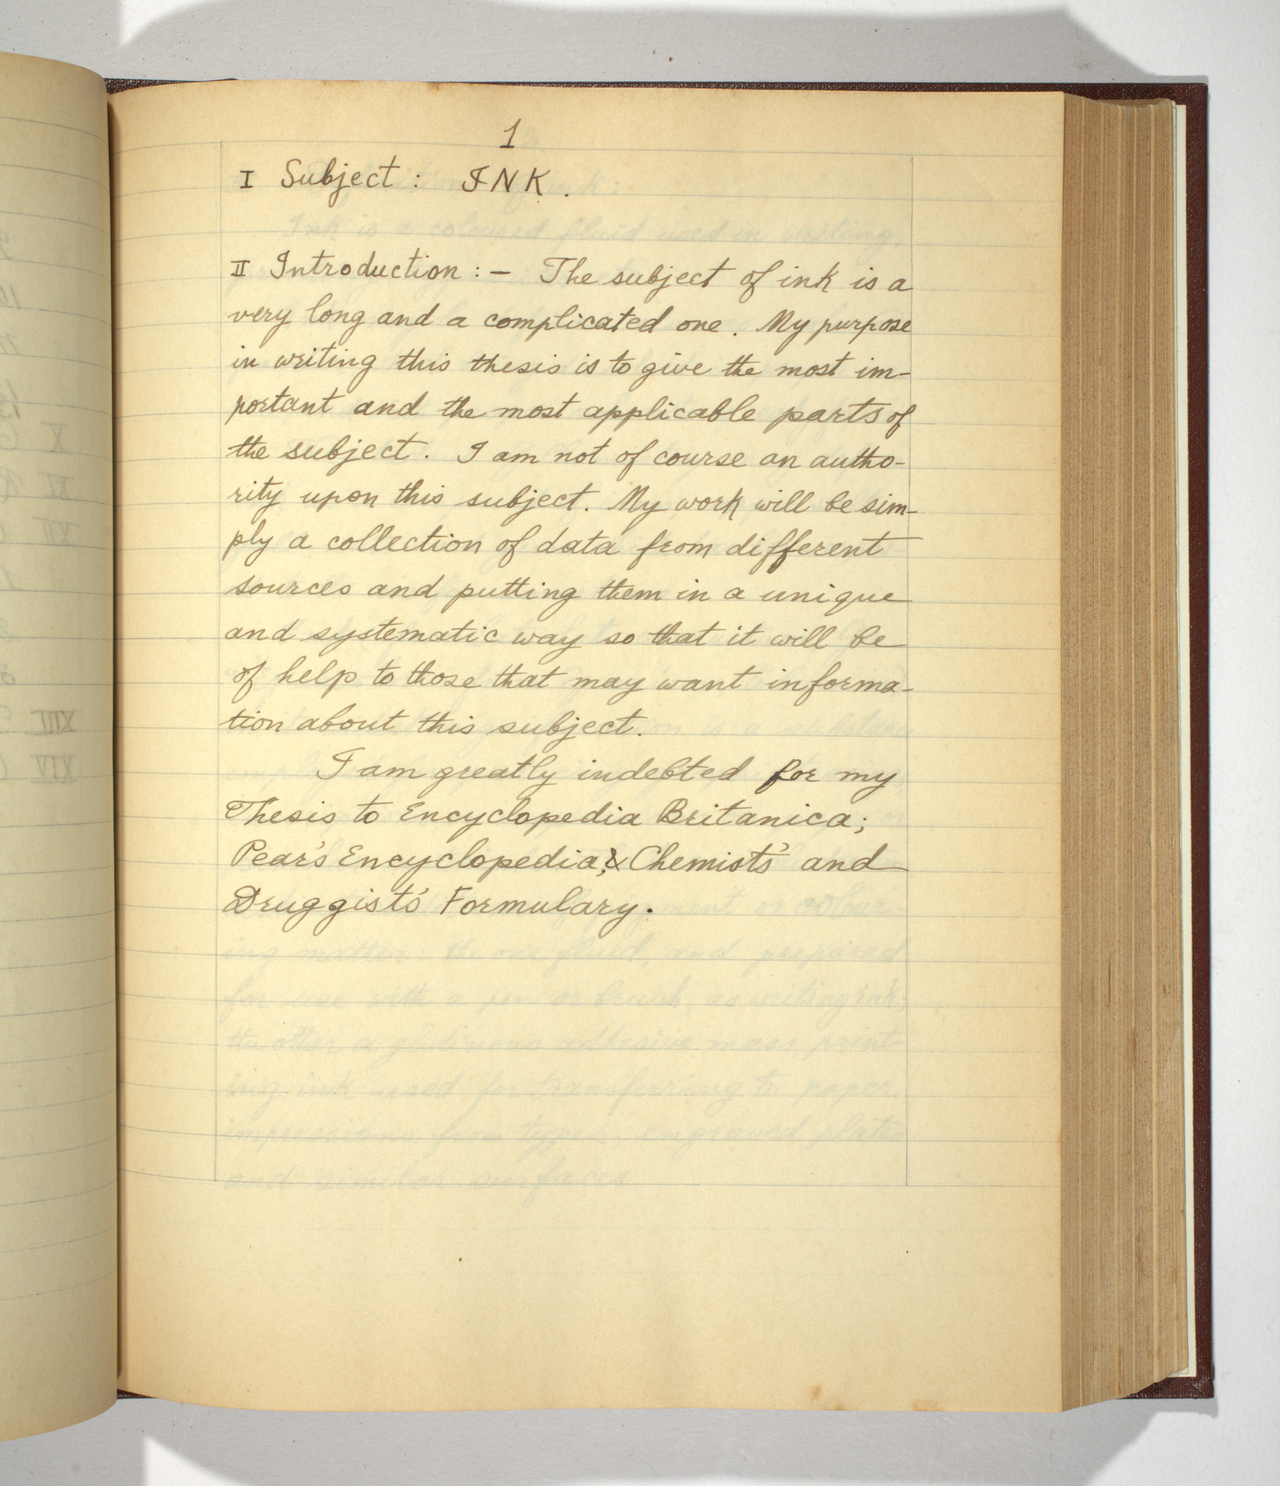 1
I Subject : INK .
II Introduction : — The subject of ink is a
very long and a complicated one . My purpose
in writing this thesis is to give the most im-
portant and the most applicable parts of
the subject . I am not of course an autho-
rity upon this subject. My work will be sim-
ply a collection of data from different
sources and putting them in a unique
and systematic way so that it will be
of help to those that may want informa-
tion about this subject.
I am greatly indebted for my
Thesis to Encyclopedia Britanica;
Pear's Encyclopedia, & Chemists' and
Druggists' Formulary.